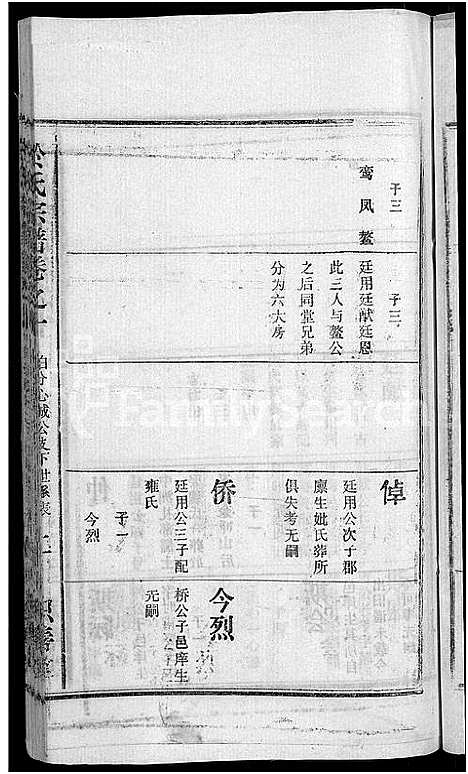 于三
鸾凤鳌
于三
廷用廷猷廷恩
此三人与鳌公
之后同堂兄弟
分为六大房
倬
廷用公次子郡
廪生妣氏葬所
俱失考无嗣
侨
廷用公三子配
雍氏
于一
今烈
今烈
桥公子邑庠生
无嗣
氏宗谱卷之一
familysearch